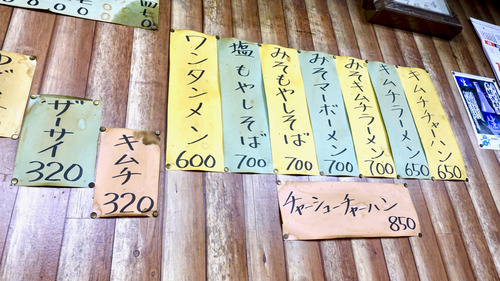 ザーサイ 320
キムチ 320
ワンタンメン 600
塩もやしそば 700
みそもやしそば 700
みそマーボーメン 700
みそキムチラーメン 700
キムチラーメン 650
キムチチャーハン 650
チャーシューチャーハン 850